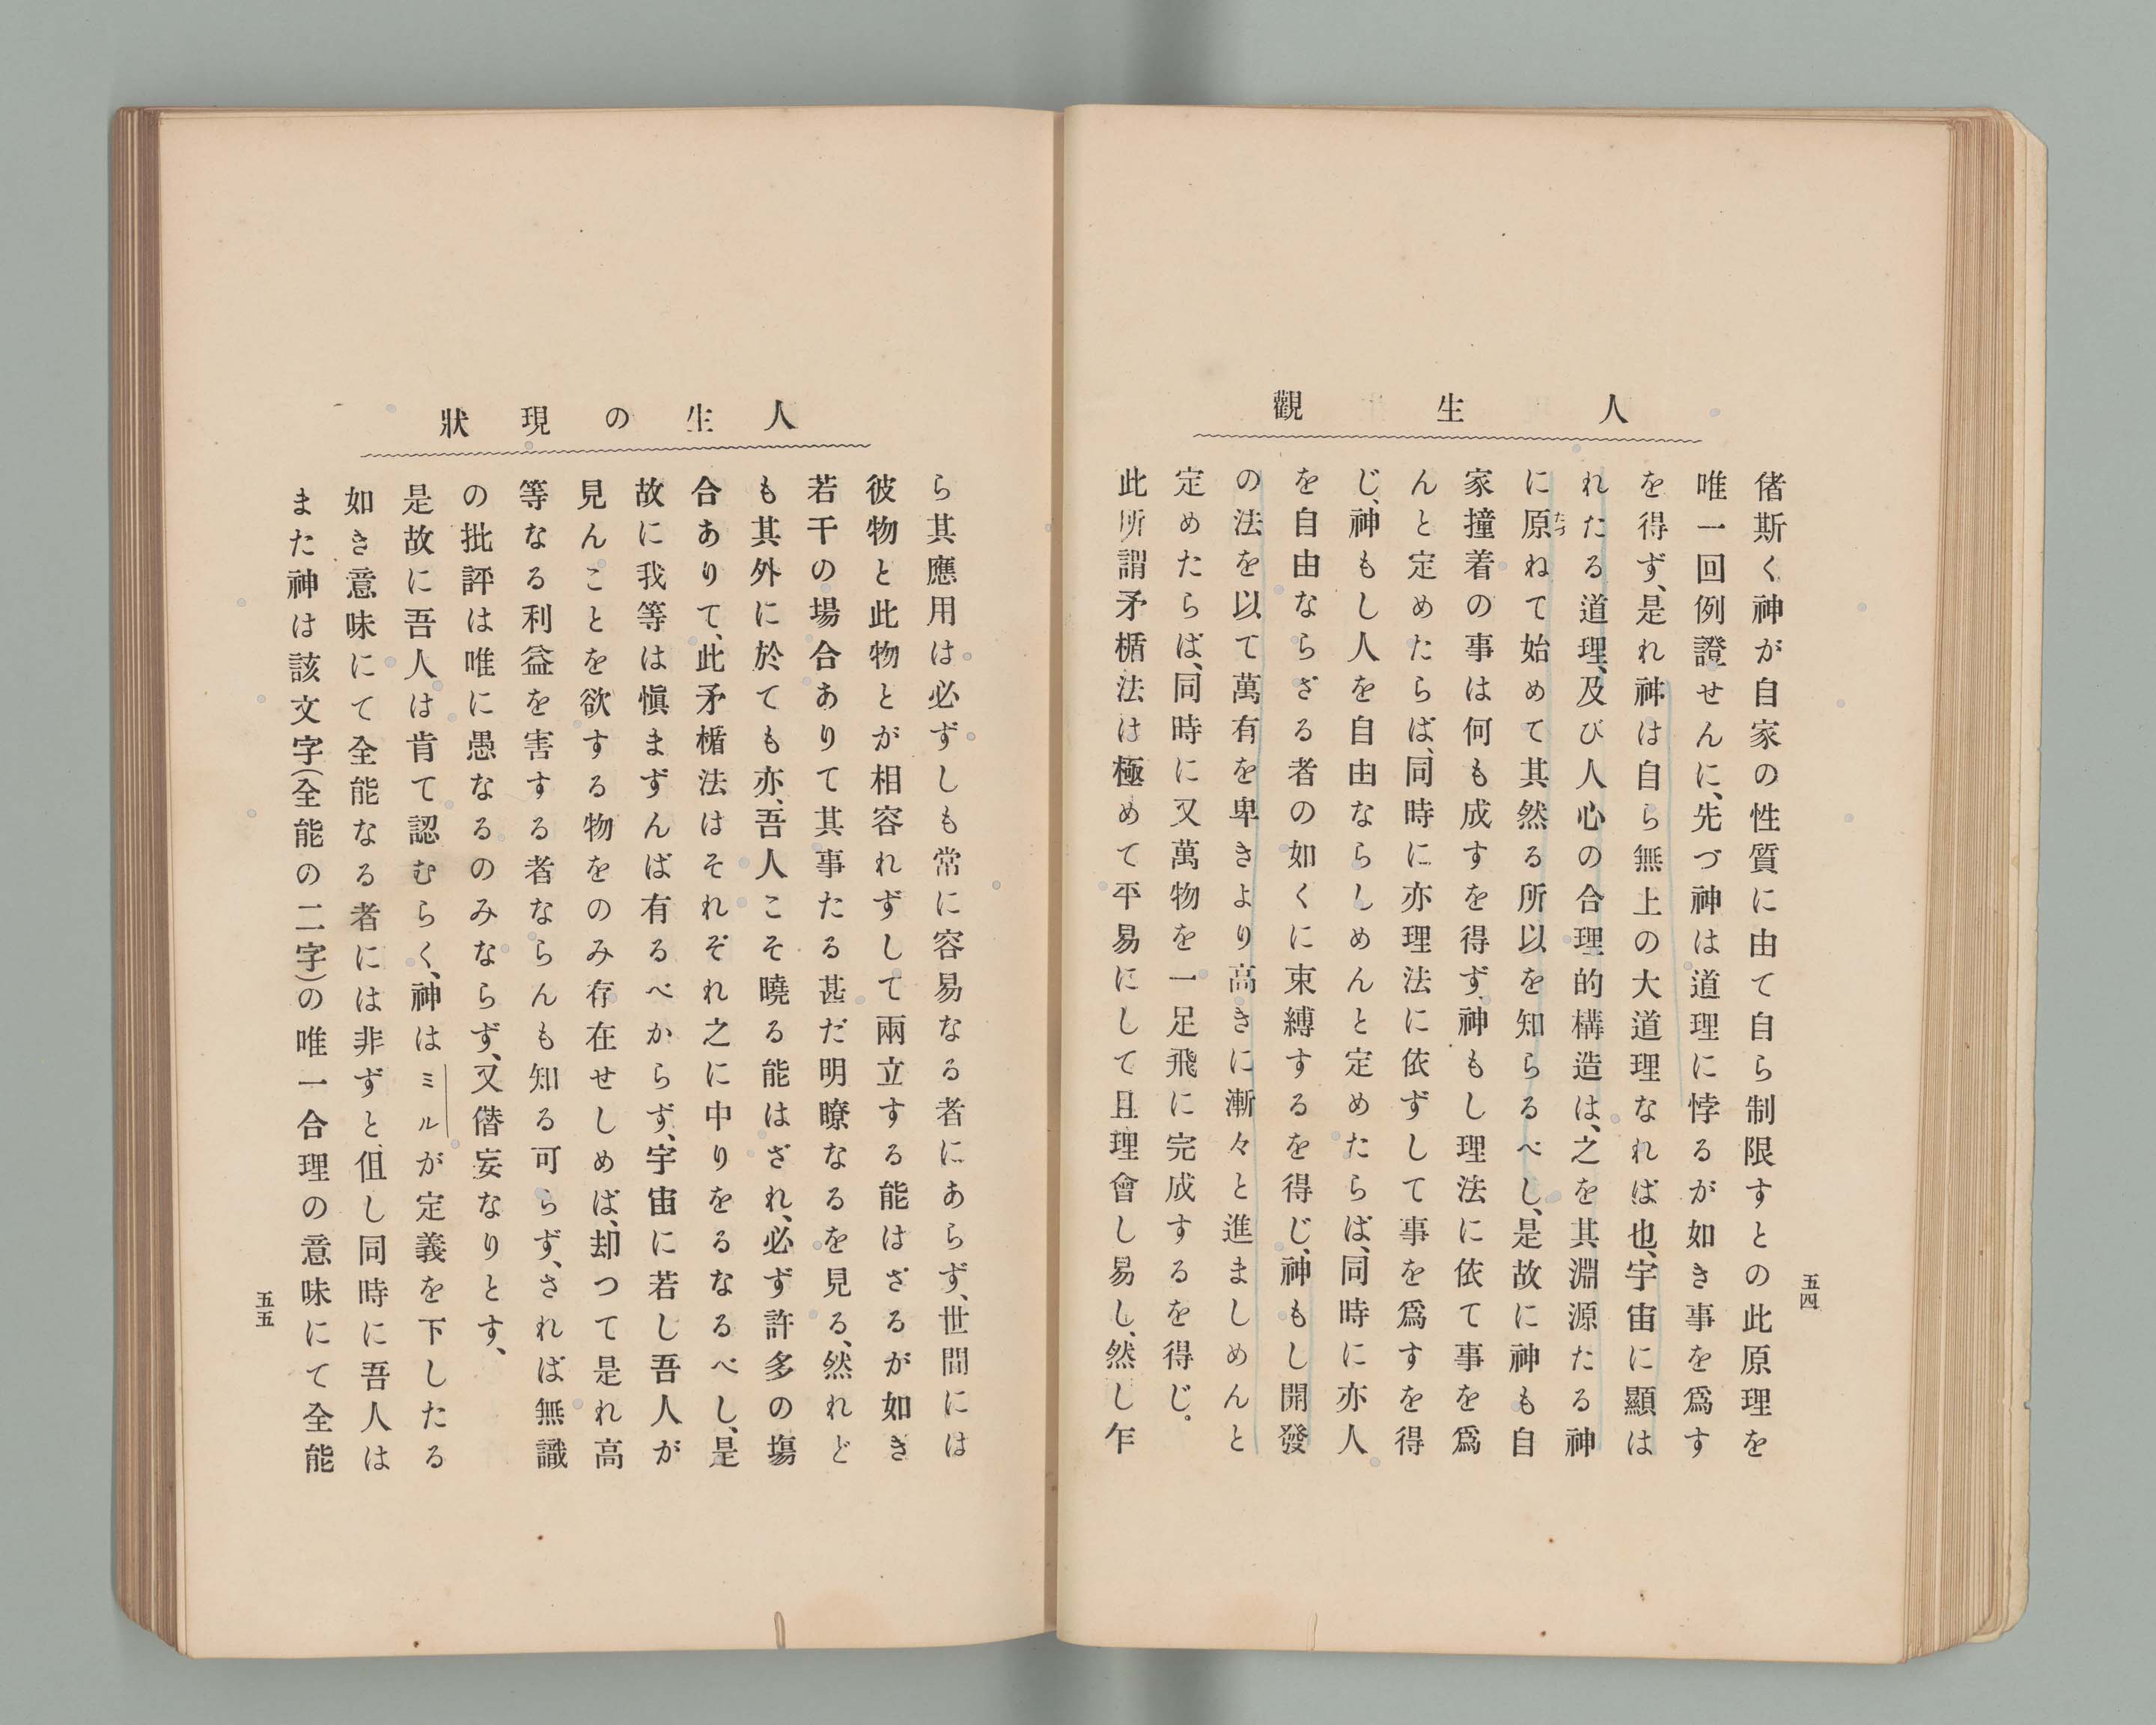 人生觀
五四
偖斯く神が自家の性質に由て自ら制限すとの此原理を
唯一回例證せんに、先づ神は道理に悖るが如き事を爲す
を得ず、是れ神は自ら無上の大道理なれば也、宇宙に顯は
れたる道理、及び人心の合理的構造は、之を其淵源たる神
に原ねて始めて其然る所以を知らるべし、是故に神も自
たづ
家撞着の事は何も成すを得ず、神もし理法に依て事を爲
んと定めたらば、同時に亦理法に依ずして事を爲すを得
じ、神もし人を自由ならしめんと定めたらば、同時に亦人
を自由ならざる者の如くに束縛するを得じ、神もし開發
の法を以て萬有を卑きより高きに漸々と進ましめんと
定めたらば、同時に又萬物を一足飛に完成するを得じ。
此所謂矛楯法は極めて平易にして且理會し易し、然し乍
人生の現狀
ら其應用は必ずしも常に容易なる者にあらず、世間には
彼物と此物とが相容れずして兩立する能はざるが如き
若干の場合ありて其事たる甚だ明瞭なるを見る、然れど
も其外に於ても亦、吾人こそ曉る能はざれ、必ず許多の塲
合ありて、此矛楯法はそれぞれ之に中りをるなるべし、是
故に我等は愼まずんば有るべからず、宇宙に若し吾人が
見んことを欲する物をのみ存在せしめば、却つて是れ高
等なる利益を害する者ならんも知る可らず、されば無識
の批評は唯に愚なるのみならず、又僭妄なりとす、
是故に吾人は肯て認むらく、神はミルが定義を下したる
如き意味にて全能なる者には非ずと、伹し同時に吾人は
また神は該文字(全能の二字)の唯一合理の意味にて全能
五五